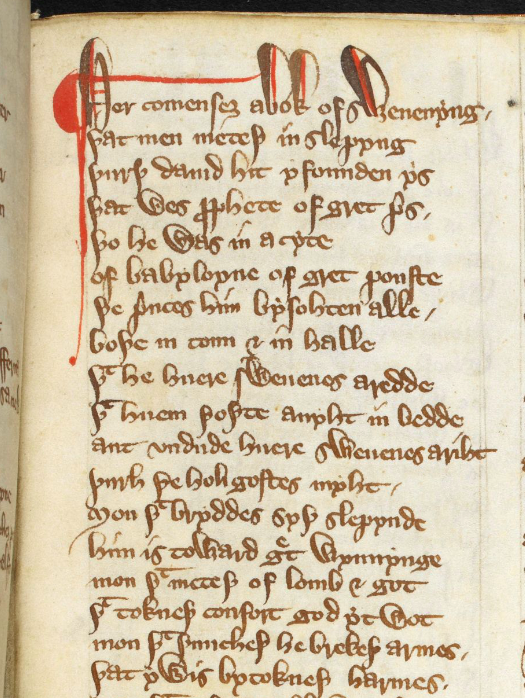 Her comensez a bok of Swevenyng,
þat men meteþ in slepyng
þurþ dauid hit yfounden ys
þat wes pphete of gret pˢs,
þo he was in a cyte
of babyloyne of gret pouste
þe pnces him bysohten alle,
boþe in toun & in halle
þᵗ he huere sweuenes aredde
þᵗ huem þohte anyht in bedde
ant vndude huere sweuenes ariht
þurh þe holi gostes myht,
Mon þᵗ bryddes syþ slepynde
him is toward gᵗ wynnynge
mon þᵗ meteþ of lomb & got
þᵗ tokneþ confort god yt wot
mon þᵗ þuncheþ he brekeþ armes,
þat ywis bytokneþ harmes,